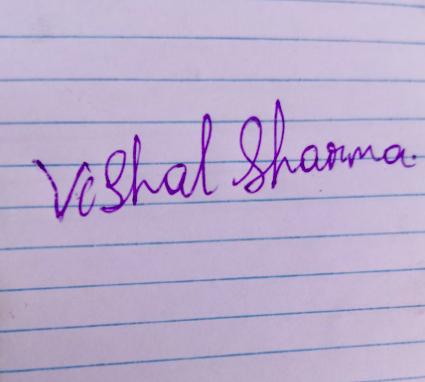 Vishal Sharma.